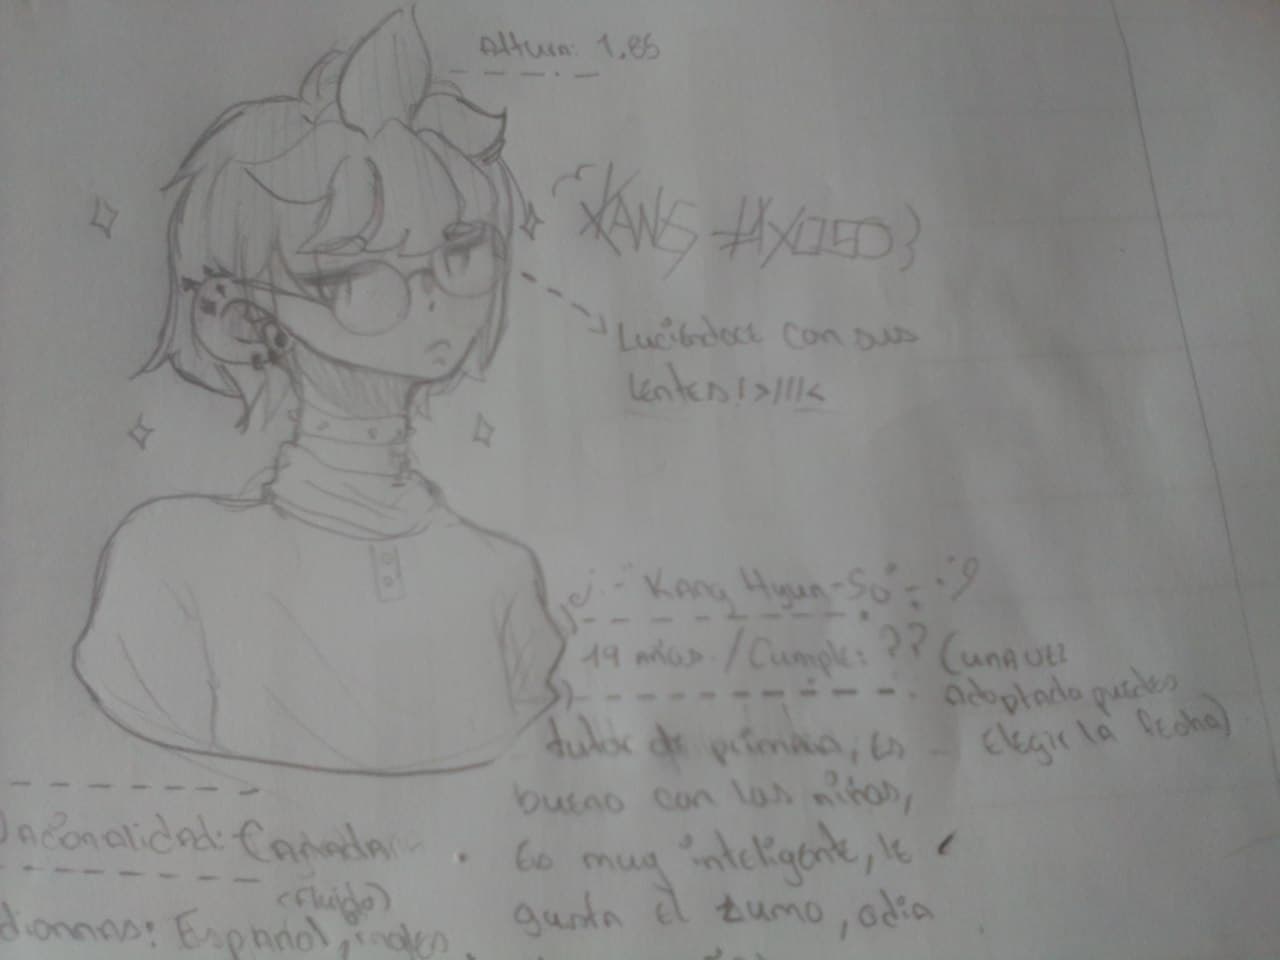 Altura: 1.85
KANG HYUN SO}
Luciendoce con sus
lentes! >///<
Kang Hyun-So
19 años. / Cumple: ?? (una vez
Adoptada puedes
elegir la fecha)
tutor de primaria, es
bueno con los niños,
Es muy inteligente, le
gusta el zumo, odia
Nacionalidad: Canada
(fluido)
Idiomas: Español, ingles